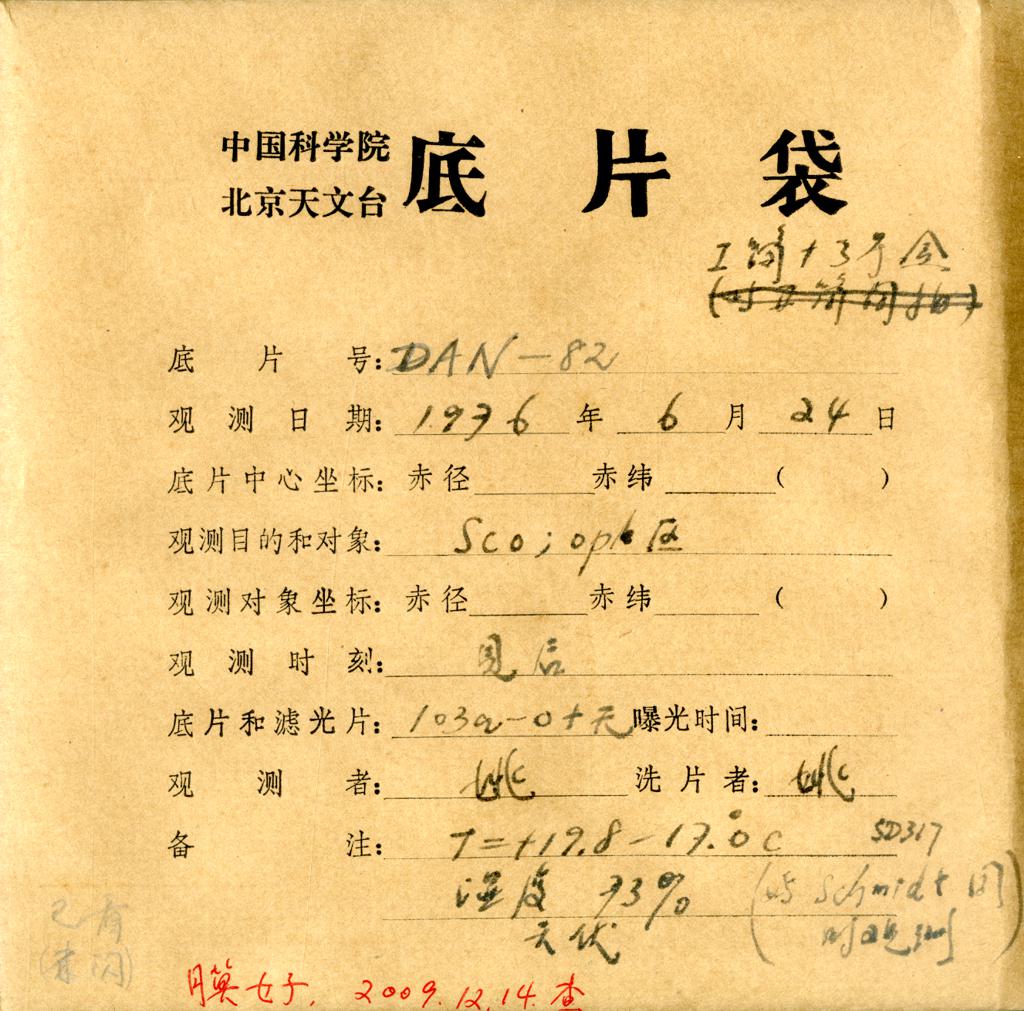 中国科学院
北京天文台 底片袋
底片号：DAN-82
观测日期：1976年6月24日
底片中心坐标：赤径 赤纬 （ ）
观测目的和对象：Sco; oph 区
观测对象坐标：赤径 赤纬 （ ）
观测时刻：见后
底片和滤光片：103a-O+天 曝光时间：
观测者：姚 洗片者：姚
备注：T=+19.8-17.0°C SD317
湿度 93% (与 Schmidt 同
天优 时观测)
已有
膜好. 2009.12.14.查